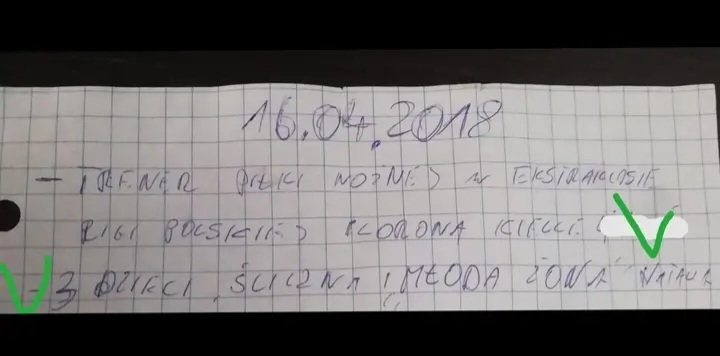 16.04.2018
- TRENER PIŁKI NOŻNEJ W EKSTRAKLASIE
LIGI POLSKIEJ KORONA KIELCE
- 3 DZIECI, ŚLICZNA I MŁODA ŻONA